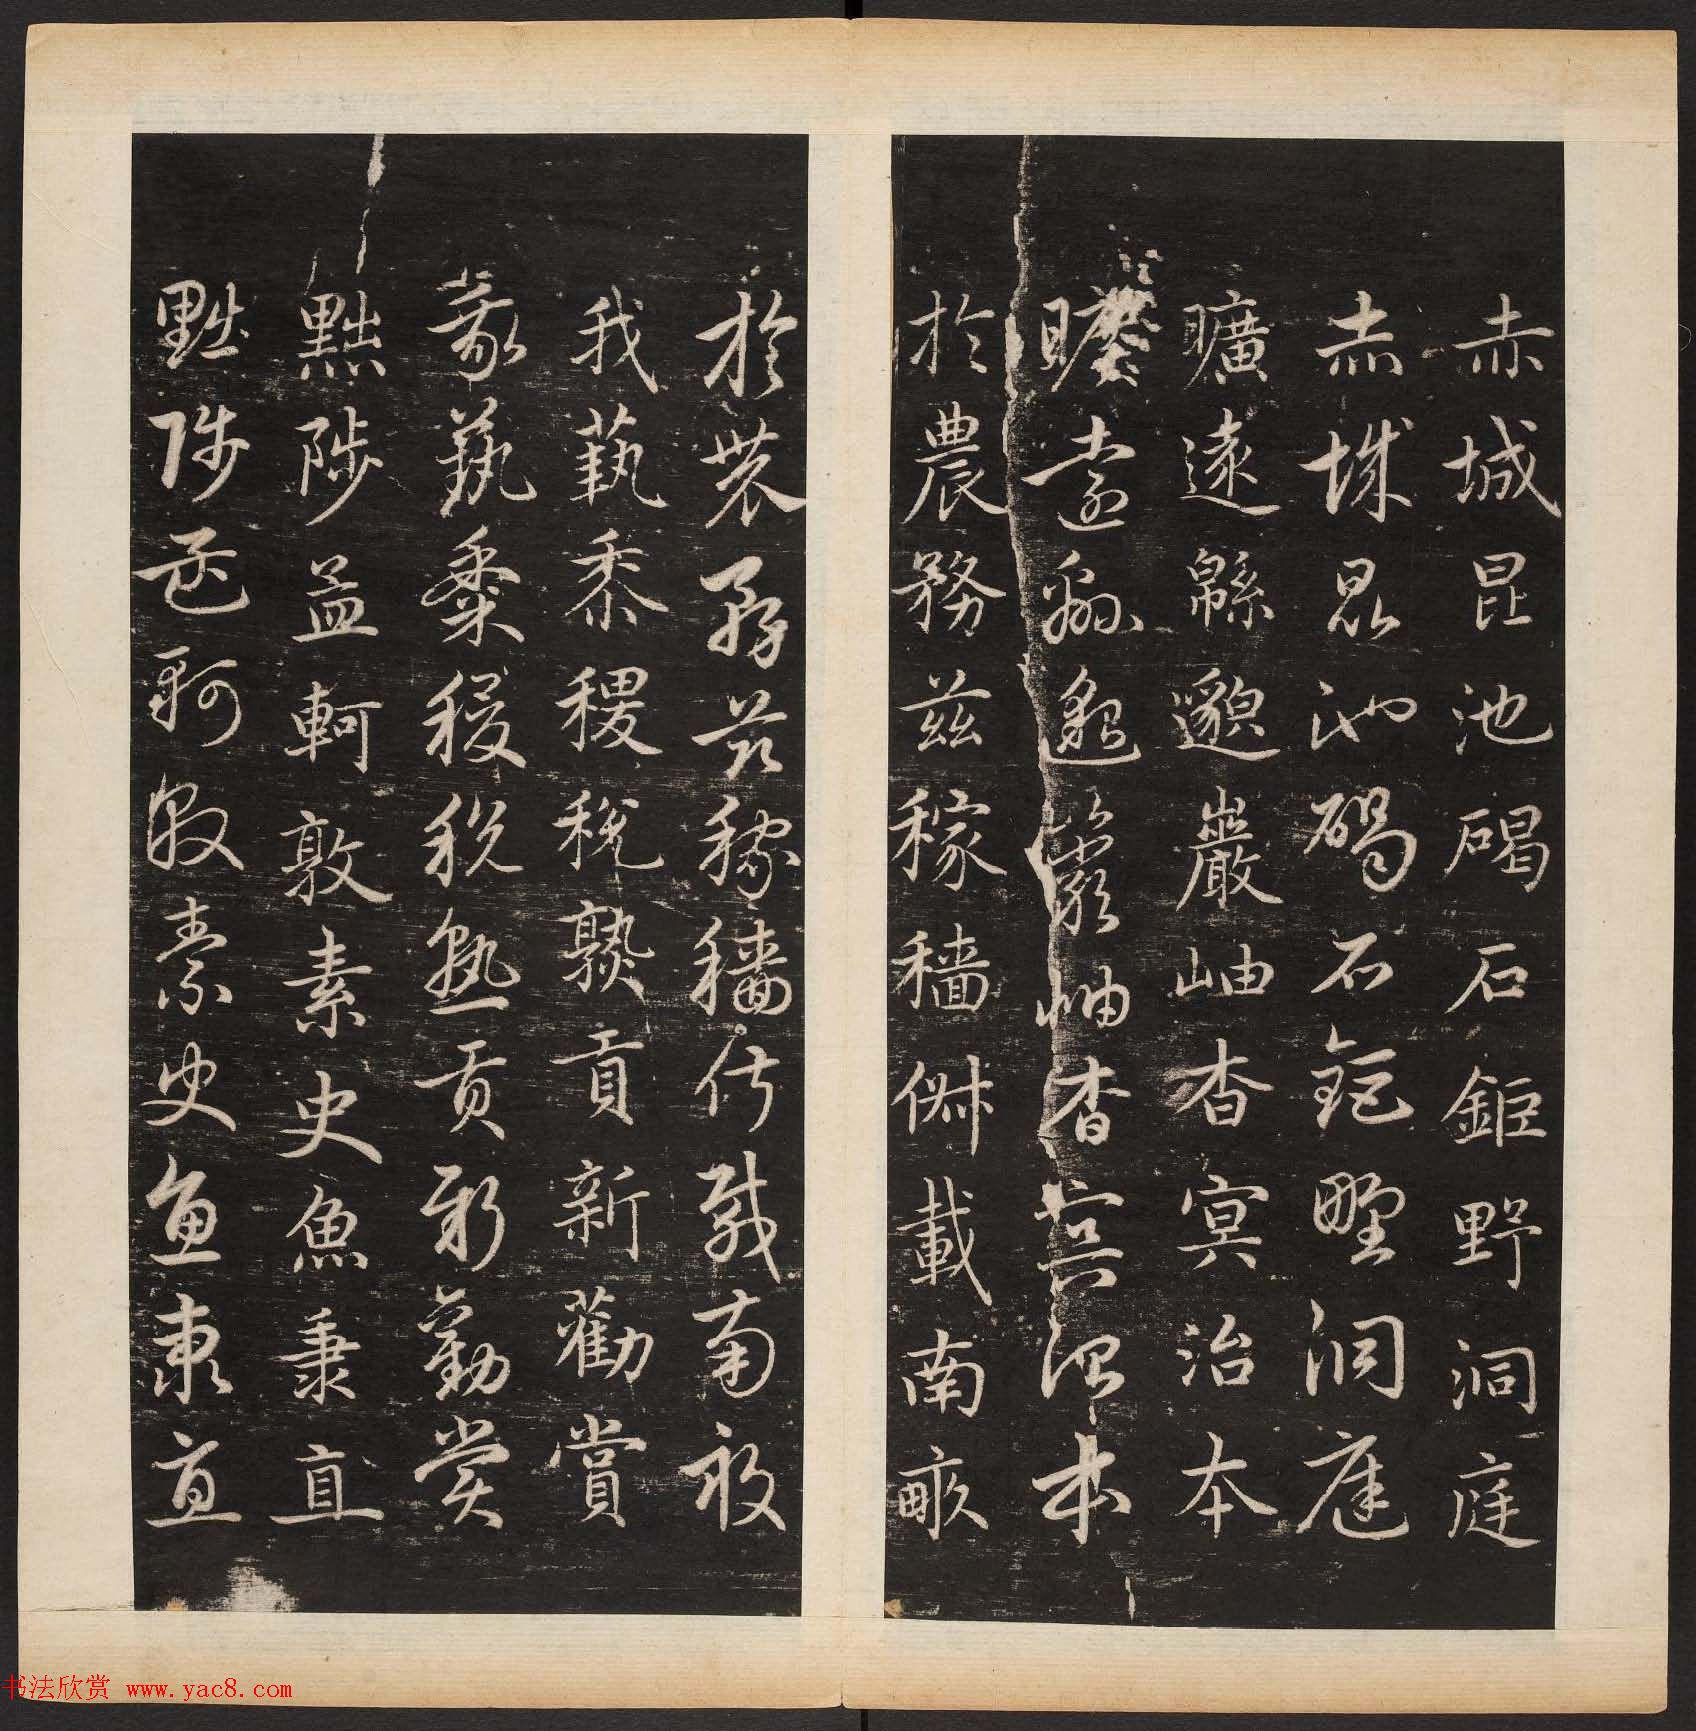 赤城昆池碣石鉅野洞庭
赤城昆池碣石鉅野洞庭
曠遠緜邈巖岫杳冥治本
曠遠緜邈巖岫杳冥治本
於農務茲稼穡俶載南畝
於農務茲稼穡俶載南畝
我藝黍稷稅熟貢新勸賞
我藝黍稷稅熟貢新勸賞
黜陟孟軻敦素史魚秉直
黜陟孟軻敦素史魚秉直
书法欣赏 www.yac8.com